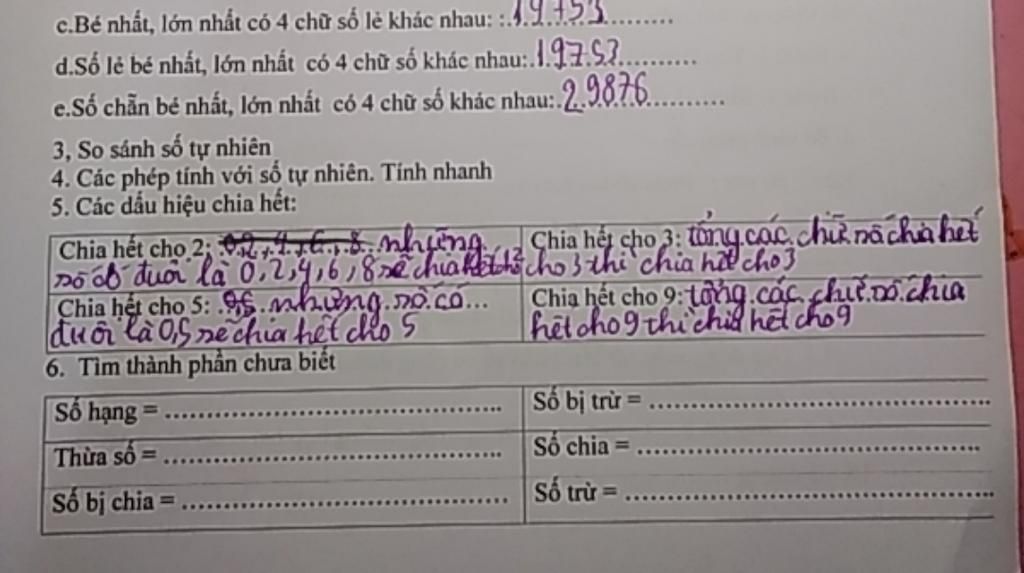 c.Bé nhất, lớn nhất có 4 chữ số lẻ khác nhau: :.19753.........
d.Số lẻ bé nhất, lớn nhất có 4 chữ số khác nhau:.19753..........
e.Số chẵn bé nhất, lớn nhất có 4 chữ số khác nhau:.29876..........
3, So sánh số tự nhiên
4. Các phép tính với số tự nhiên. Tính nhanh
5. Các dấu hiệu chia hết:
Chia hết cho 2: những
số có đuôi là 0,2,4,6,8 sẽ chia hết cho
Chia hết cho 3: tổng các chữ số chia hết
cho 3 thì chia hết cho 3
Chia hết cho 5: những số có...
đuôi là 0,5 sẽ chia hết cho 5
Chia hết cho 9: tổng các chữ số chia
hết cho 9 thì chia hết cho 9
6. Tìm thành phần chưa biết
Số hạng = ........................................
Số bị trừ = ........................................
Thừa số = ........................................
Số chia = ........................................
Số bị chia = ........................................
Số trừ = ........................................